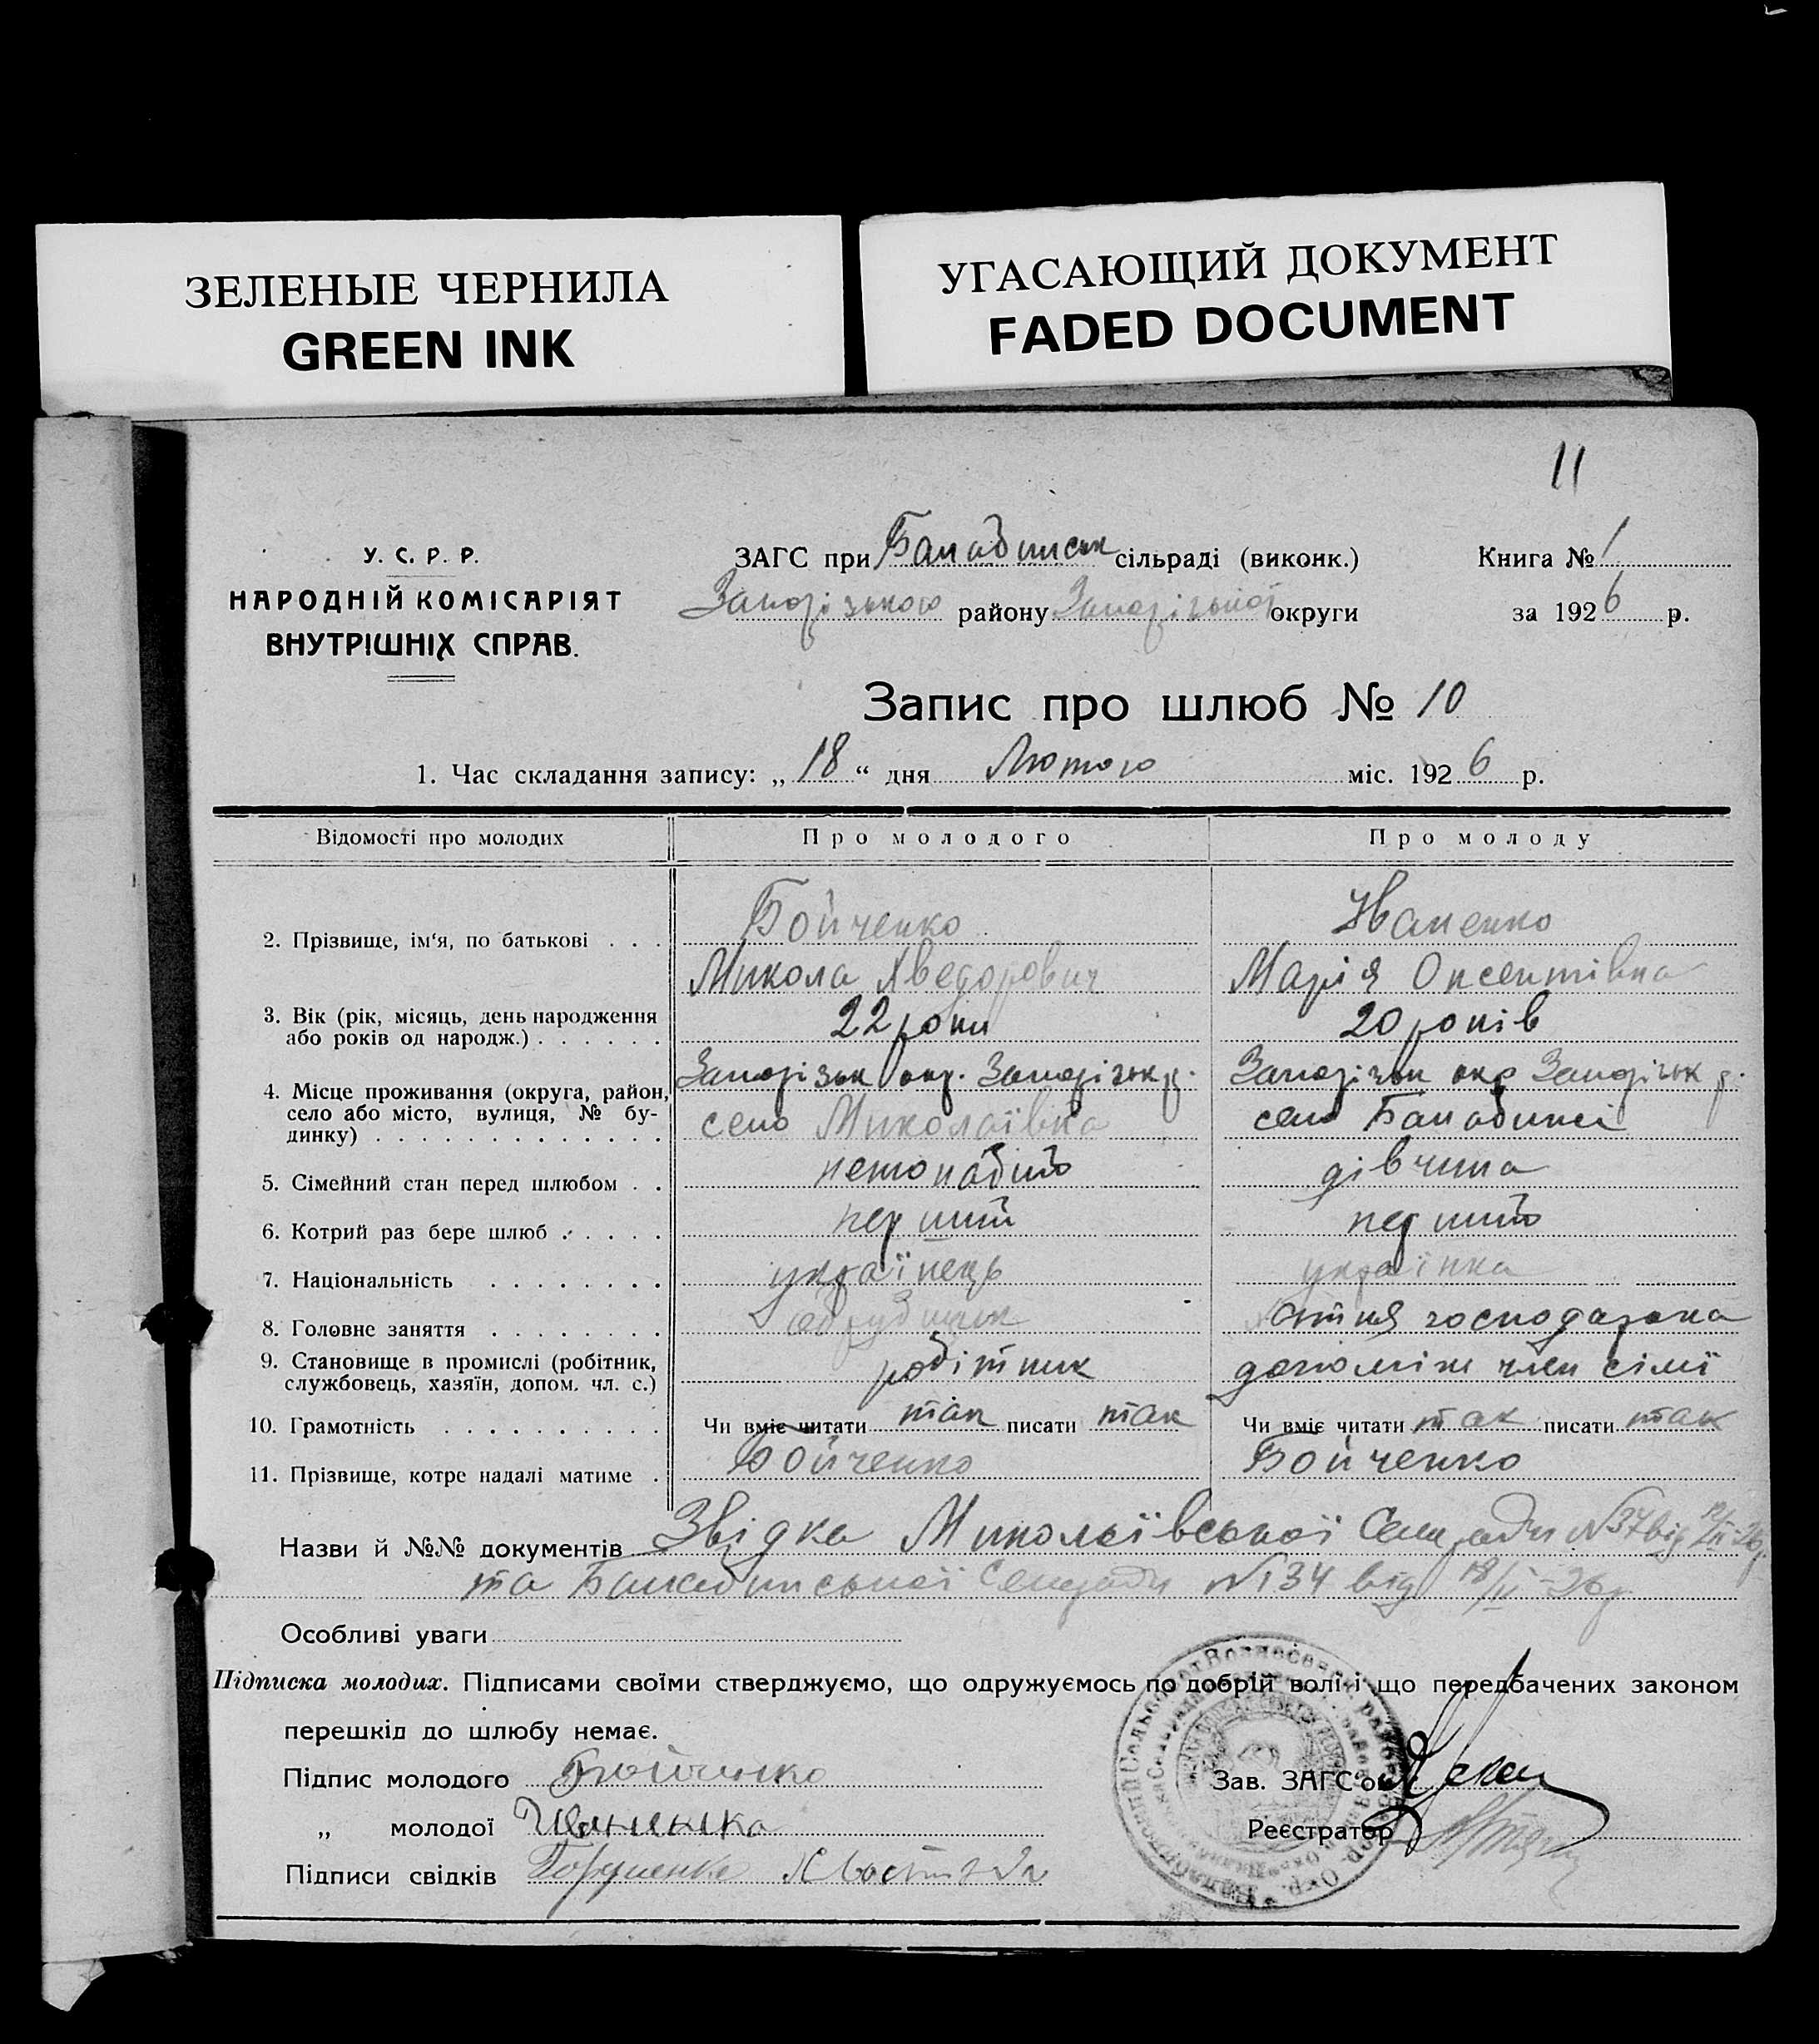 ЗЕЛЕНЫЕ ЧЕРНИЛА
GREEN INK
УГАСАЮЩИЙ ДОКУМЕНТ
FADED DOCUMENT
11
У. С. Р. Р.
НАРОДНІЙ КОМІСАРІЯТ
ВНУТРІШНІХ СПРАВ.
ЗАГС при Балабинськ сільраді (виконк.)
Запорізького району Запорізької округи
Книга № 1
за 1926 р.
Запис про шлюб № 10
1. Час складання запису: „ 18 “ дня Лютого міс. 1926 р.
Відомості про молодих Про молодого Про молоду
2. Прізвище, ім‘я, по батькові . . . Бойченко Іваненко
Микола Хведорович Марія Оксентівна
3. Вік (рік, місяць, день народження або років од народж.) . . . . . . 22 роки 20 років
4. Місце проживання (округа, район, село або місто, вулиця, № будинку) . . . . . . . . . . . . . Запорізьк окр. Запорізьк р. Запорізьк окр Запорізьк р.
село Миколаївка село Балабинці
5. Сімейний стан перед шлюбом . . нежонатий дівчина
6. Котрий раз бере шлюб . . . . . перший перший
7. Національність . . . . . . . . українець українка
8. Головне заняття . . . . . . . . хатня господарка
9. Становище в промислі (робітник, службовець, хазяїн, допом. чл. с.) робітник допоміж член сімї
10. Грамотність . . . . . . . . . . Чи вміє читати так писати так Чи вміє читати так писати так
11. Прізвище, котре надалі матиме . Бойченко Бойченко
Назви й №№ документів Звідка Миколаївської Сельради №37 від 12/II-26р.
та Балабинської Сельради №134 від 18/II-26р
Особливі уваги
Підписка молодих. Підписами своїми стверджуємо, що одружуємось по добрій волі і що передбачених законом
перешкід до шлюбу немає.
Підпис молодого Бойченко
„ молодої Іваненка
Підписи свідків
Зав. ЗАГС‘ом
Реєстратор